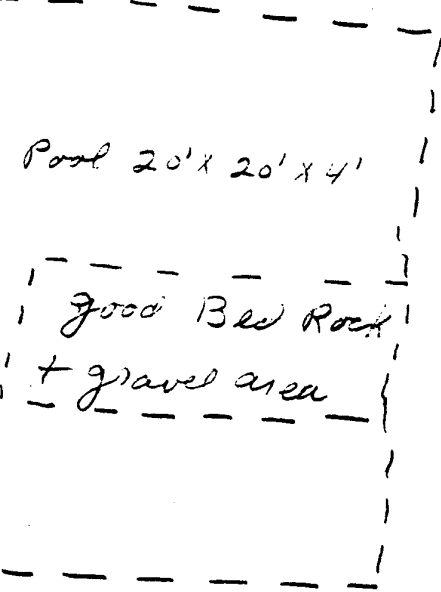 Pool 20' x 20' x 4'
good Bed Rock
+ gravel area